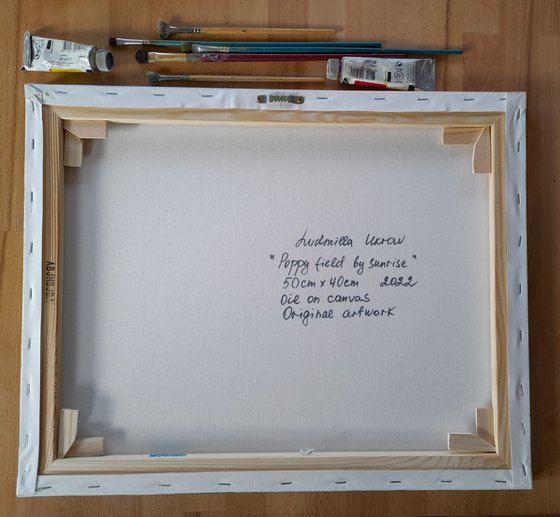 Ludmilla Ukrow
"Poppy field by sunrise"
50cm x 40cm 2022
Oil on canvas
Original artwork